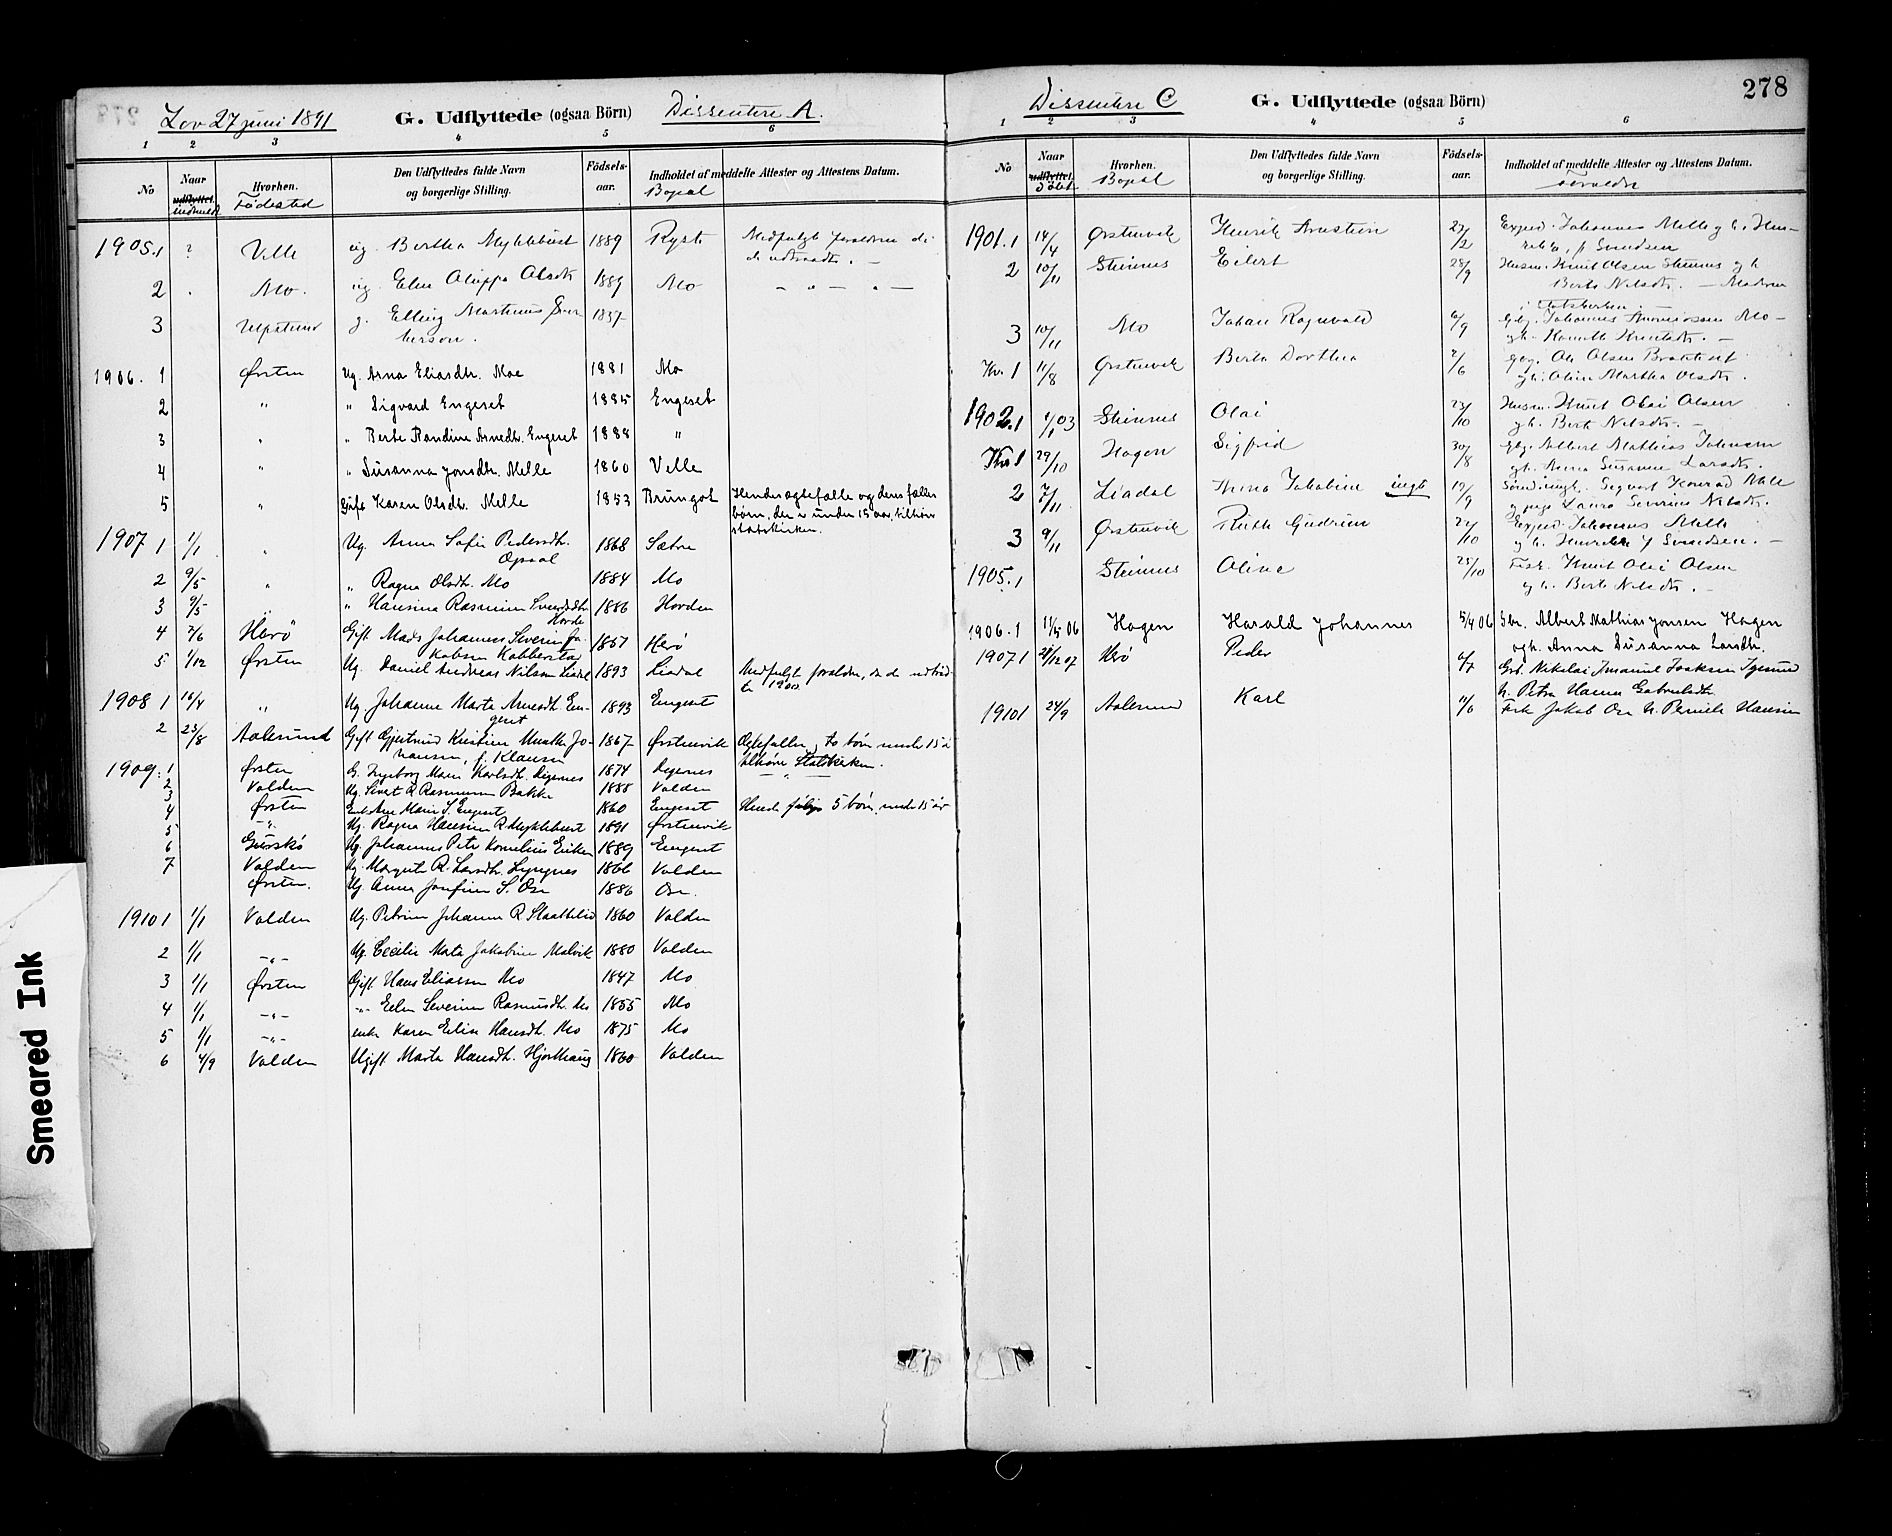 Lov 27 juni 1891 G. Udflyttede (ogsaa Börn) Dissentere A.
1 2 3 4 5 6
No Naar udflyttet. indmeldt Hvorhen. Födested Den Udflyttedes fulde Navn og borgerlige Stilling. Födsels-aar. Indholdet af meddelte Attester og Attestens Datum. Bopæl
1905.1 ? Velle ug. Bertha Myklebust 1889 Ryste Medfulgte forældrene da
de udtraadte. —
2 Mo. ug. Olsdtr 1889 Mo — " — " —
3 g. Elling Martinus
1906. 1 Örsten Ug. Arna Eliasdtr. Moe 1881 Mo
2 " " Sigvard Engeset 1885 Engeset
3 " " Berte Randine Arnedtr. Engeset 1888 "
4 " " Susanna Jonsdtr. Melle 1860 Velle
5 " Gift Karen Olsdtr. Melle 1853 Brungot Hendes egtefælle og deres fælles
børn, der er under 15 aar, tilhører
statskirken.
1907 1 1/1 " Ug. Anna Sofie Pedersdtr. 1868 Sætre
Opsal
2 9/5 " " Ragna Olsdtr. Mo 1884 Mo
3 9/5 " " Hansina Rasmine 1886 Hovden
Hovde
4 7/6 Herö Gift. Mads Johannes Severin Ja- 1857 Herö
kobsen Kobberstad
5 1/12 Örsten Ug. Daniel Andreas Nilsen Liadal 1893 Liadal Medfulgt forældre, da de udtraad-
te
1908 1 16/4 " Ug. Johanne Marta Arnesdtr. En- 1893 Engeset
geset
2 23/8 Aalesund Gift Gjertrud Kristine Jo- 1867 Örstenvik Egtefællen, to børn under 15 år
hansen, f. Klausen tilhøre Statskirken.
1909. 1 Örsten G. Ingeborg Marie Karlsdtr. Digernes 1874 Digernes — " —
2 Volden Ug. Sivert R Rasmussen Bakke 1888 Volden
3 Örsten Enke Ane Marie S. Engeset 1860 Engeset 5 børn, under 15 år
4 — " — Ug. Ragna Hansine R Myklebust 1891 Örstenvik
5 Gurskö Ug. Johannes Peter Kornelius Eriksen 1889 Engeset
6 Volden Ug. Margrete R. Larsdtr. 1866 Volden
7 Örsten. Ug. Anna Josefine S. Ose 1886 Ose.
1910 1 1/1 Volden Ug. Petrine Johanne R Slaattelid 1860 Volden
2 1/1 — " — Ug. Cecilie Marta Jakobine Malvik 1880 Volden
3 1/1 Örsten Gift Hans Eliassen Mo 1847 Mo
4 1/1 — " — — " — Elen Severine Rasmusdtr. Mo 1855 Mo
5 1/1 — " — enke Karen Elise Hansdtr. Mo 1875 Mo
6 4/9 Volden Ugift Marte Hansdtr. Hjorthaug 1860 Volden
Dissentere C G. Udflyttede (ogsaa Börn) 278
1 2 3 4 5 6
No Naar udflyttet. Födt Hvorhen. Bopæl Den Udflyttedes fulde Navn og borgerlige Stilling. Födsels-aar. Indholdet af meddelte Attester og Attestens Datum. Forældre
1901.1 14/4 Örstenvik Henrik Arnstein 23/2 Exped. Johannes Melle og h. Hen-
f Svendsen
2 10/11 Steinnes Eilert 28/9 Husm. Knut Olsen Steinnes og h.
Berte Nilsdtr. — Moderen
i Statskirken. —
3 10/11 Mo Johan Ragnvald 6/9 Gbr. Johannes Mo —
og h. Knutsdtr. —
Kv. 1 11/8 Örstenvik Berta Dorthea 2/6 Ole Olsen
og h. Oline Martha Olsdtr.
1902.1 1/1 03 Steinnes Olai 23/10 Husm. Knut Olai Olsen
og h. Berte Nilsdtr. —
Kv. 1 29/10 Hagen Sigfrid 30/8 Gbr. Albert Mathias Johnsen
og h. Anna Susanna Larsdtr.
2 7/11 Liadal Anna Jakobine uegt 19/9 Sigvart Konrad
og pige Laura Severine Nilsdtr.
3 9/11 Örstenvik Ruth Gudrun 22/10 Exped. Johannes Melle
og h. Henrikke f Svendsen. —
1905.1 Steinnes Oline 25/10 Fisk. Knut Olai Olsen
og h. Berte Nilsdtr. —
1906.1 11/5 06 Hagen Harald Johannes 5/4 06 Gbr. Albert Mathias Jonsen Hagen
og h. Anna Susanna Larsdtr.
1907 1 28/12 07 Herö Peder 6/7 Grb. Nikolai Imanuel
h. Petra Hanna Gabrielsdtr.
1910 1 24/9 Aalesund Karl 11/6 Fisk Jakob Ose h. Pernile Hansine
Smeared Ink